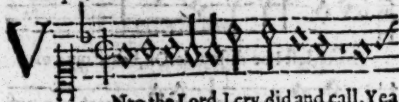 V
Nto the Lord I cry did and call, Yea